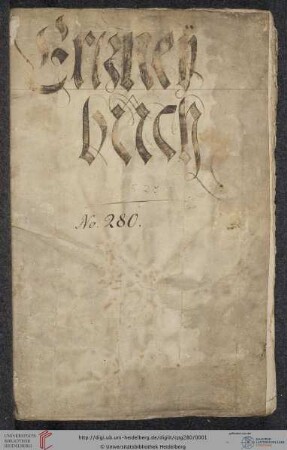 Ertzneÿ
buch
No. 280.
UNIVERSITÄTS-
BIBLIOTHEK
HEIDELBERG
http://digi.ub.uni-heidelberg.de/diglit/cpg280/0001
© Universitätsbibliothek Heidelberg